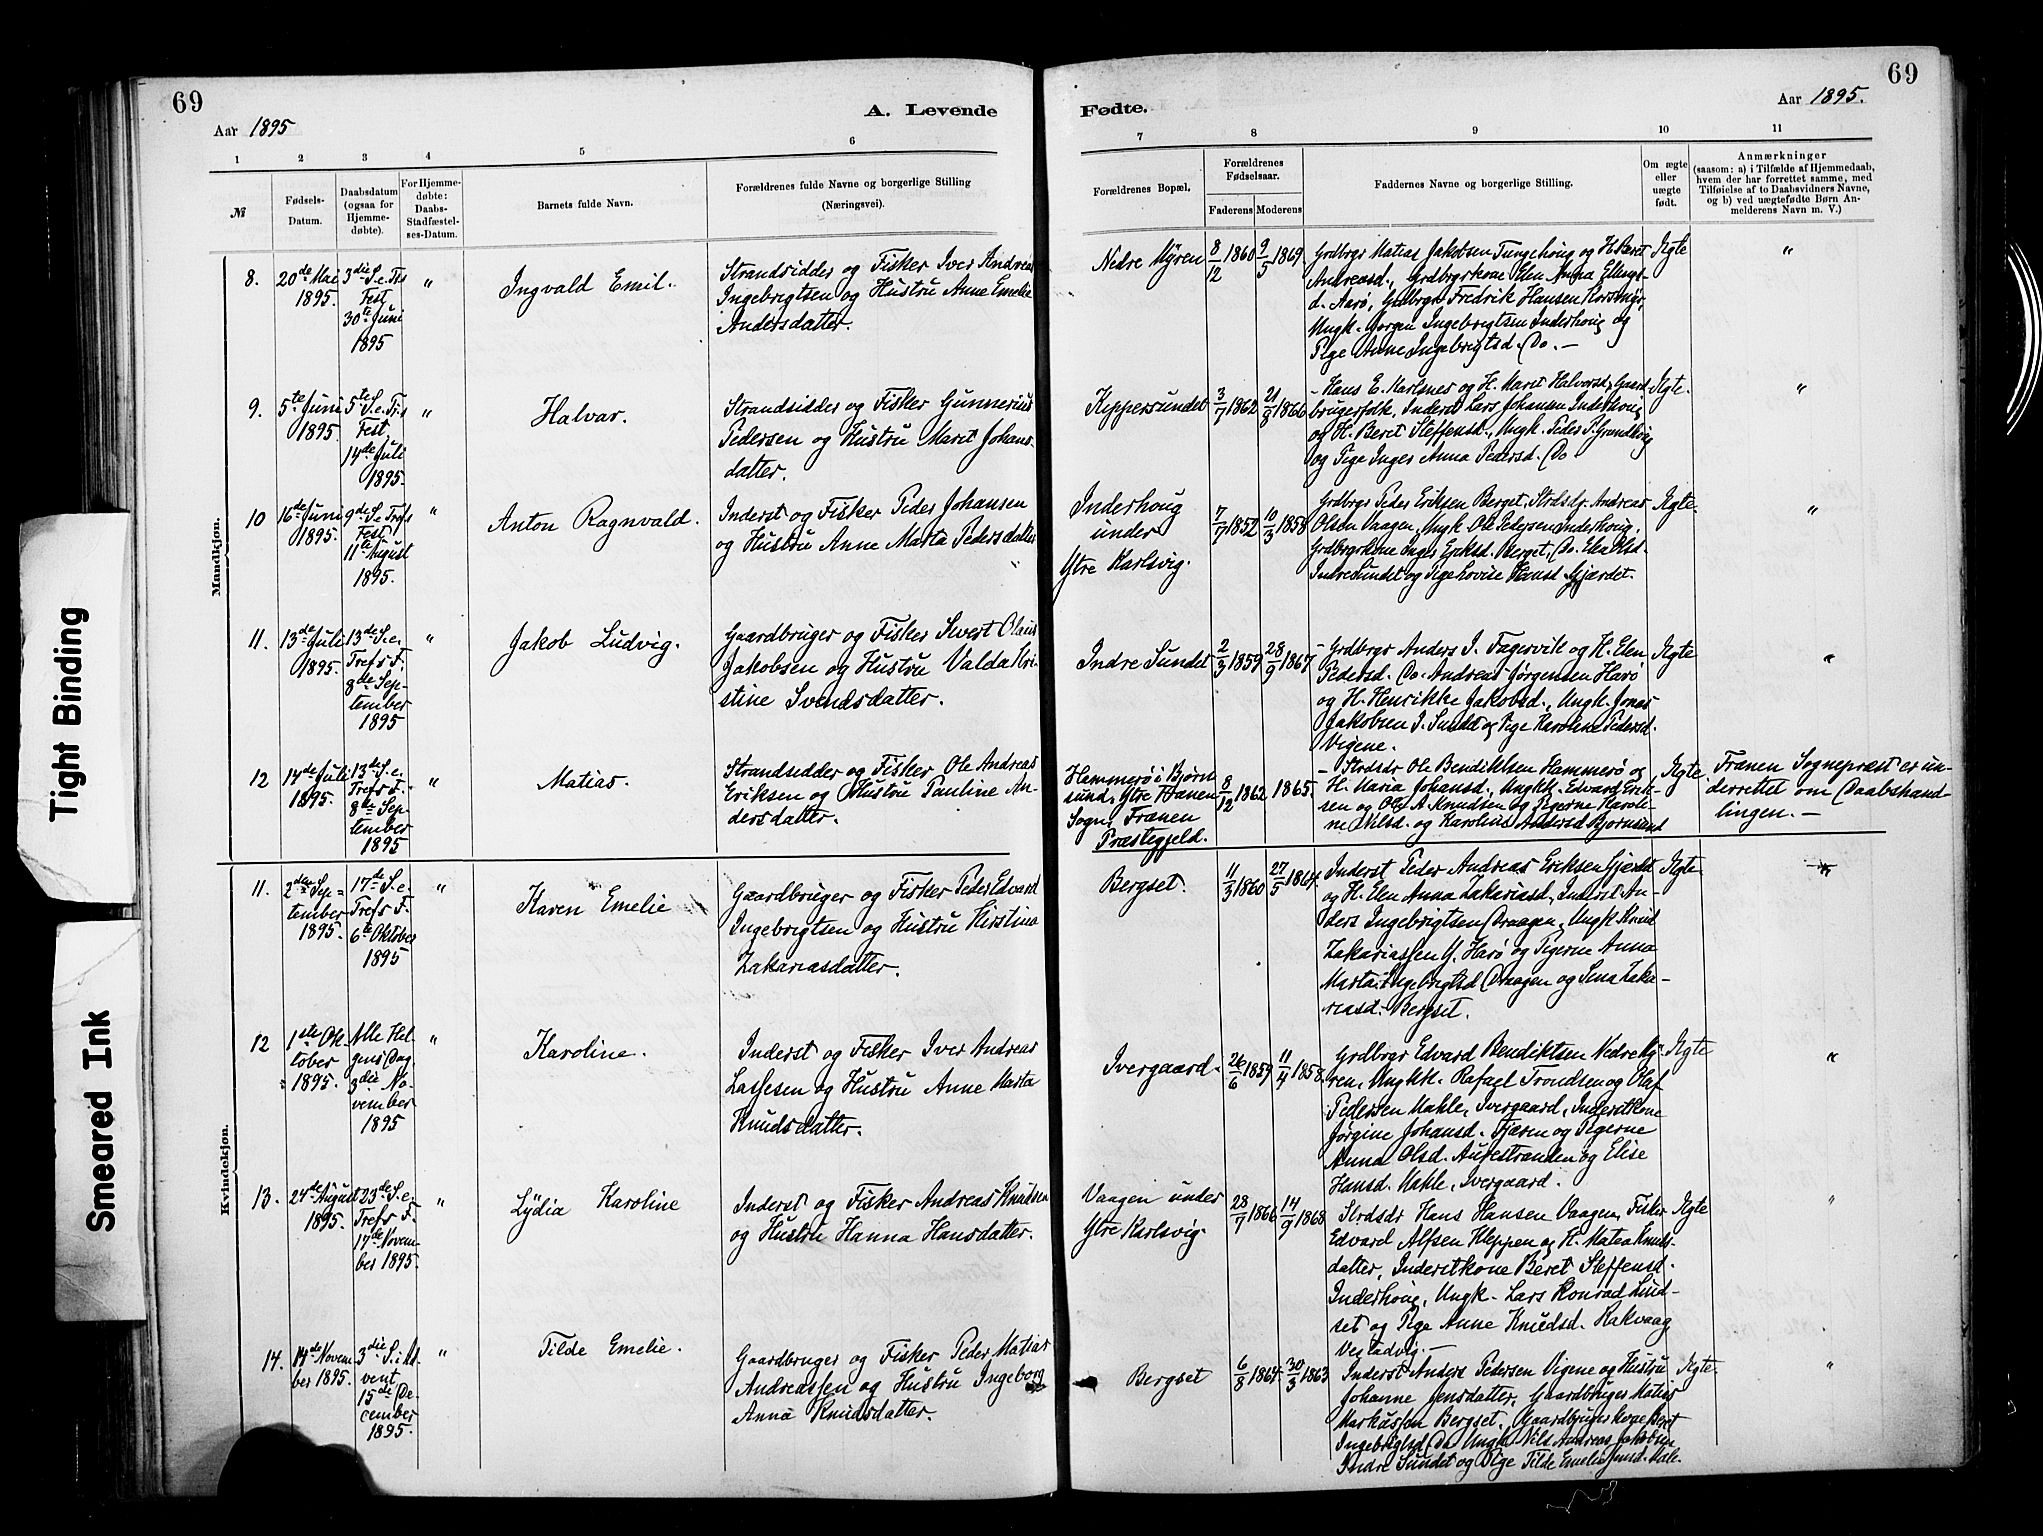 69
Aar 1895
A. Levende
1 2 3 4 5 6
№
Fødsels-
Datum.
Daabsdatum
(ogsaa for
Hjemme-
døbte).
For Hjemme-
døbte:
Daabs-
Stadfæstel-
ses-Datum.
Barnets fulde Navn.
Forældrenes fulde Navne og borgerlige Stilling
(Næringsvei).
Mandkjøn.
8.
20de Mai
1895.
3die S. e. Trs
Fest,
30te Juni
1895
"
Ingvald Emil.
Strandsidder og Fisker Iver Andreas
Ingebrigtsen og Hustru Anne Emelie
Andersdatter.
9.
5te Juni
1895.
5te S. e. Trs
Fest,
14de Juli
1895.
"
Halvar.
Strandsidder og Fisker Gunnerius
Pedersen og Hustru Marit Johans-
datter.
10
16de Juni
1895.
9de S. e. Trefs
Fest
11te August
1895.
"
Anton Ragnvald.
Inderst og Fisker Peder Johansen
og Hustru Anne Marta Pedersdatter
11.
13de Juli
1895.
13de S. e.
Trefs F.
8de Sep-
tember
1895
"
Jakob Ludvig.
Gaardbruger og Fisker Sivert Olaus
Jakobsen og Hustru Valda Kri-
stine Svendsdatter.
12
14de Juli
1895.
13de S. e.
Trefs F.
8de Sep-
tember
1895
"
Matias.
Strandsidder og Fisker Ole Andreas
Eriksen og Hustru Pauline An-
dersdatter.
Kvindekjøn.
11.
2den Sep=
tember
1895.
17de S. e.
Trefs F.
6te Oktober
1895
"
Karen Emelie
Gaardbruger og Fisker Peder Edvard
Ingebrigtsen og Hustru Kirstina
Zakariasdatter.
12
1ste Ok-
tober
1895.
Alle Hel-
gens Dag
3die No-
vember
1895
"
Karoline.
Inderst og Fisker Iver Andreas
Lassesen og Hustru Anne Marta
Knudsdatter.
13.
24de August
1895.
23de S. e.
Trefs F.
17de Novem-
ber 1895.
"
Lydia Karoline
Inderst og Fisker Andreas Knudsen
og Hustru Hanna Hansdatter.
14.
14de Novem
ber 1895.
3die S. i Ad-
vent
15de De-
cember
1895.
"
Tilde Emelie.
Gaardbruger og Fisker Peder Matias
Andreassen og Hustru Ingeborg
Anna Knudsdatter.
69
Fødte.
Aar 1895.
7 8 9 10 11
Forældrenes Bopæl.
Forældrenes
Fødselsaar.
Faderens Moderens
Faddernes Navne og borgerlige Stilling.
Om ægte
eller
uægte
født.
Anmærkninger
(saasom: a) i Tilfælde af Hjemmedaab,
hvem der har forrettet samme, med
Tilføielse af to Daabsvidners Navne,
og b) ved uægtefødte Børn An-
melderens Navn m. V.)
Nedre Myren
8/12 1860
9/5 1869.
Grdbrgr Matias Jakobsen Tungehoug og H. Beret
Andreasd., Grdbrgrkone Elen Anna Ellings-
d. Aarø, Grdbrgr Fredrik Hansen Korsmyr,
Ungk. Jørgen Ingebrigtsen Inderhoug og
Pige Anne Ingebrigtsd. Do. —
Ægte
"
Kippersundet
3/7 1862
21/8 1866
- Hans E. Karlsnes og H. Marit Halvorsd, Gaard-
brugerfolk, Inderst Lars Johansen Inderhoug
og H. Beret Steffensd., Ungk. Peder P. Grundvig
og Pige Inger Anna Pedersd. Do
Ægte.
"
Inderhoug
under
Ytre Karlsvig.
7/7 1852
10/3 1858
Grdbrgr Peder Eriksen Berget, Strdsdr. Andreas
Olsen Vaagen, Ungk. Ole Pedersen Inderhoug,
Grdbrgrkone Inger Eriksd. Berget, Do. Elen Olsd.
Indre Sundet og Pige Lovise Hansd. Gjærdet.
Ægte.
"
Indre Sundet
2/3 1859
28/9 1867.
- Grdbrgr Anders I. Fagervik og H. Elen
Pedersd. Do. Andreas Jørgensen Harø
og H. Henrikke Jakobsd., Ungk. Jonas
Jakobsen I. Sundet og Pige Karoline Pedersd.
Vigene.
Ægte
"
Hammerø i Bjørn
sund, Ytre Frænen
Sogn, Frænen
Præstegjeld.
8/12 1862
1865.
- Strdsdr Ole Bendiktsen Hammerø og
H. Maria Johansd., Ungkk. Edvard Erik-
sen og Ole A. Knudsen og Pigerne Karoli-
ne Nilsd. og Karolius Andersd Bjørnsund
Ægte.
Frænen Sognepræst er un-
derrettet om Daabshand-
lingen. —
Bergset.
11/3 1860
27/5 1864.
Inderst Peder Andreas Eriksen Gjærdet
og H. Elen Anna Zakariasd., Inderst An-
ders Ingebrigtsen Draagen, Ungk Knud
Zakariassen Y. Harø og Pigerne Anna
Marta Ingebrigtsd Draagen og Sena Zaka-
riasd. Bergset.
Ægte
"
Ivergaard.
26/6 1859
11/4 1858.
Grdbrgr Edvard Bendiktsen Nedre My-
ren, Ungkk. Rafael Trondsen og Olaf
Pedersen Mahle, Ivergaard, Inderstkone
Jørgine Johansd. Tjæren og Pigerne
Anna Olsd. Aurestranden og Elise
Hansd. Mahle, Ivergaard.
Ægte
"
Vaagen under
Ytre Karlsvig.
28/7 1866
14/9 1868
Strdsdr Hans Hansen Vaagen, Fisker
Edvard Alfsen Kleppen og H. Matea Knuds-
datter, Inderstkone Beret Steffensd.
Inderhoug, Ungk. Lars Konrad Lind-
set og Pige Anne Knudsd. Rakvaag
Vestadvig. —
Ægte
"
Bergset
6/8 1864.
30/3 1863
Inderst Anders Pedersen Vigene og Hustru
Johanne Jensdatter, Gaardbruger Matias
Markussen Bergset, Gaardbrugerkone Beret
Ingebrigtsd Do Ungk Nils Andreas Jakobsen
Indre Sundet og Pige Tilde Emelie Jensd. Male.
Ægte.
"
Tight Binding
Smeared Ink